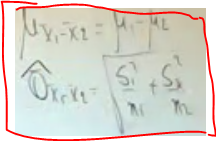 μx̄₁-x̄₂ = μ₁-μ₂
σ̂x̄₁-x̄₂ = √(S₁²/n₁ + S₂²/n₂)